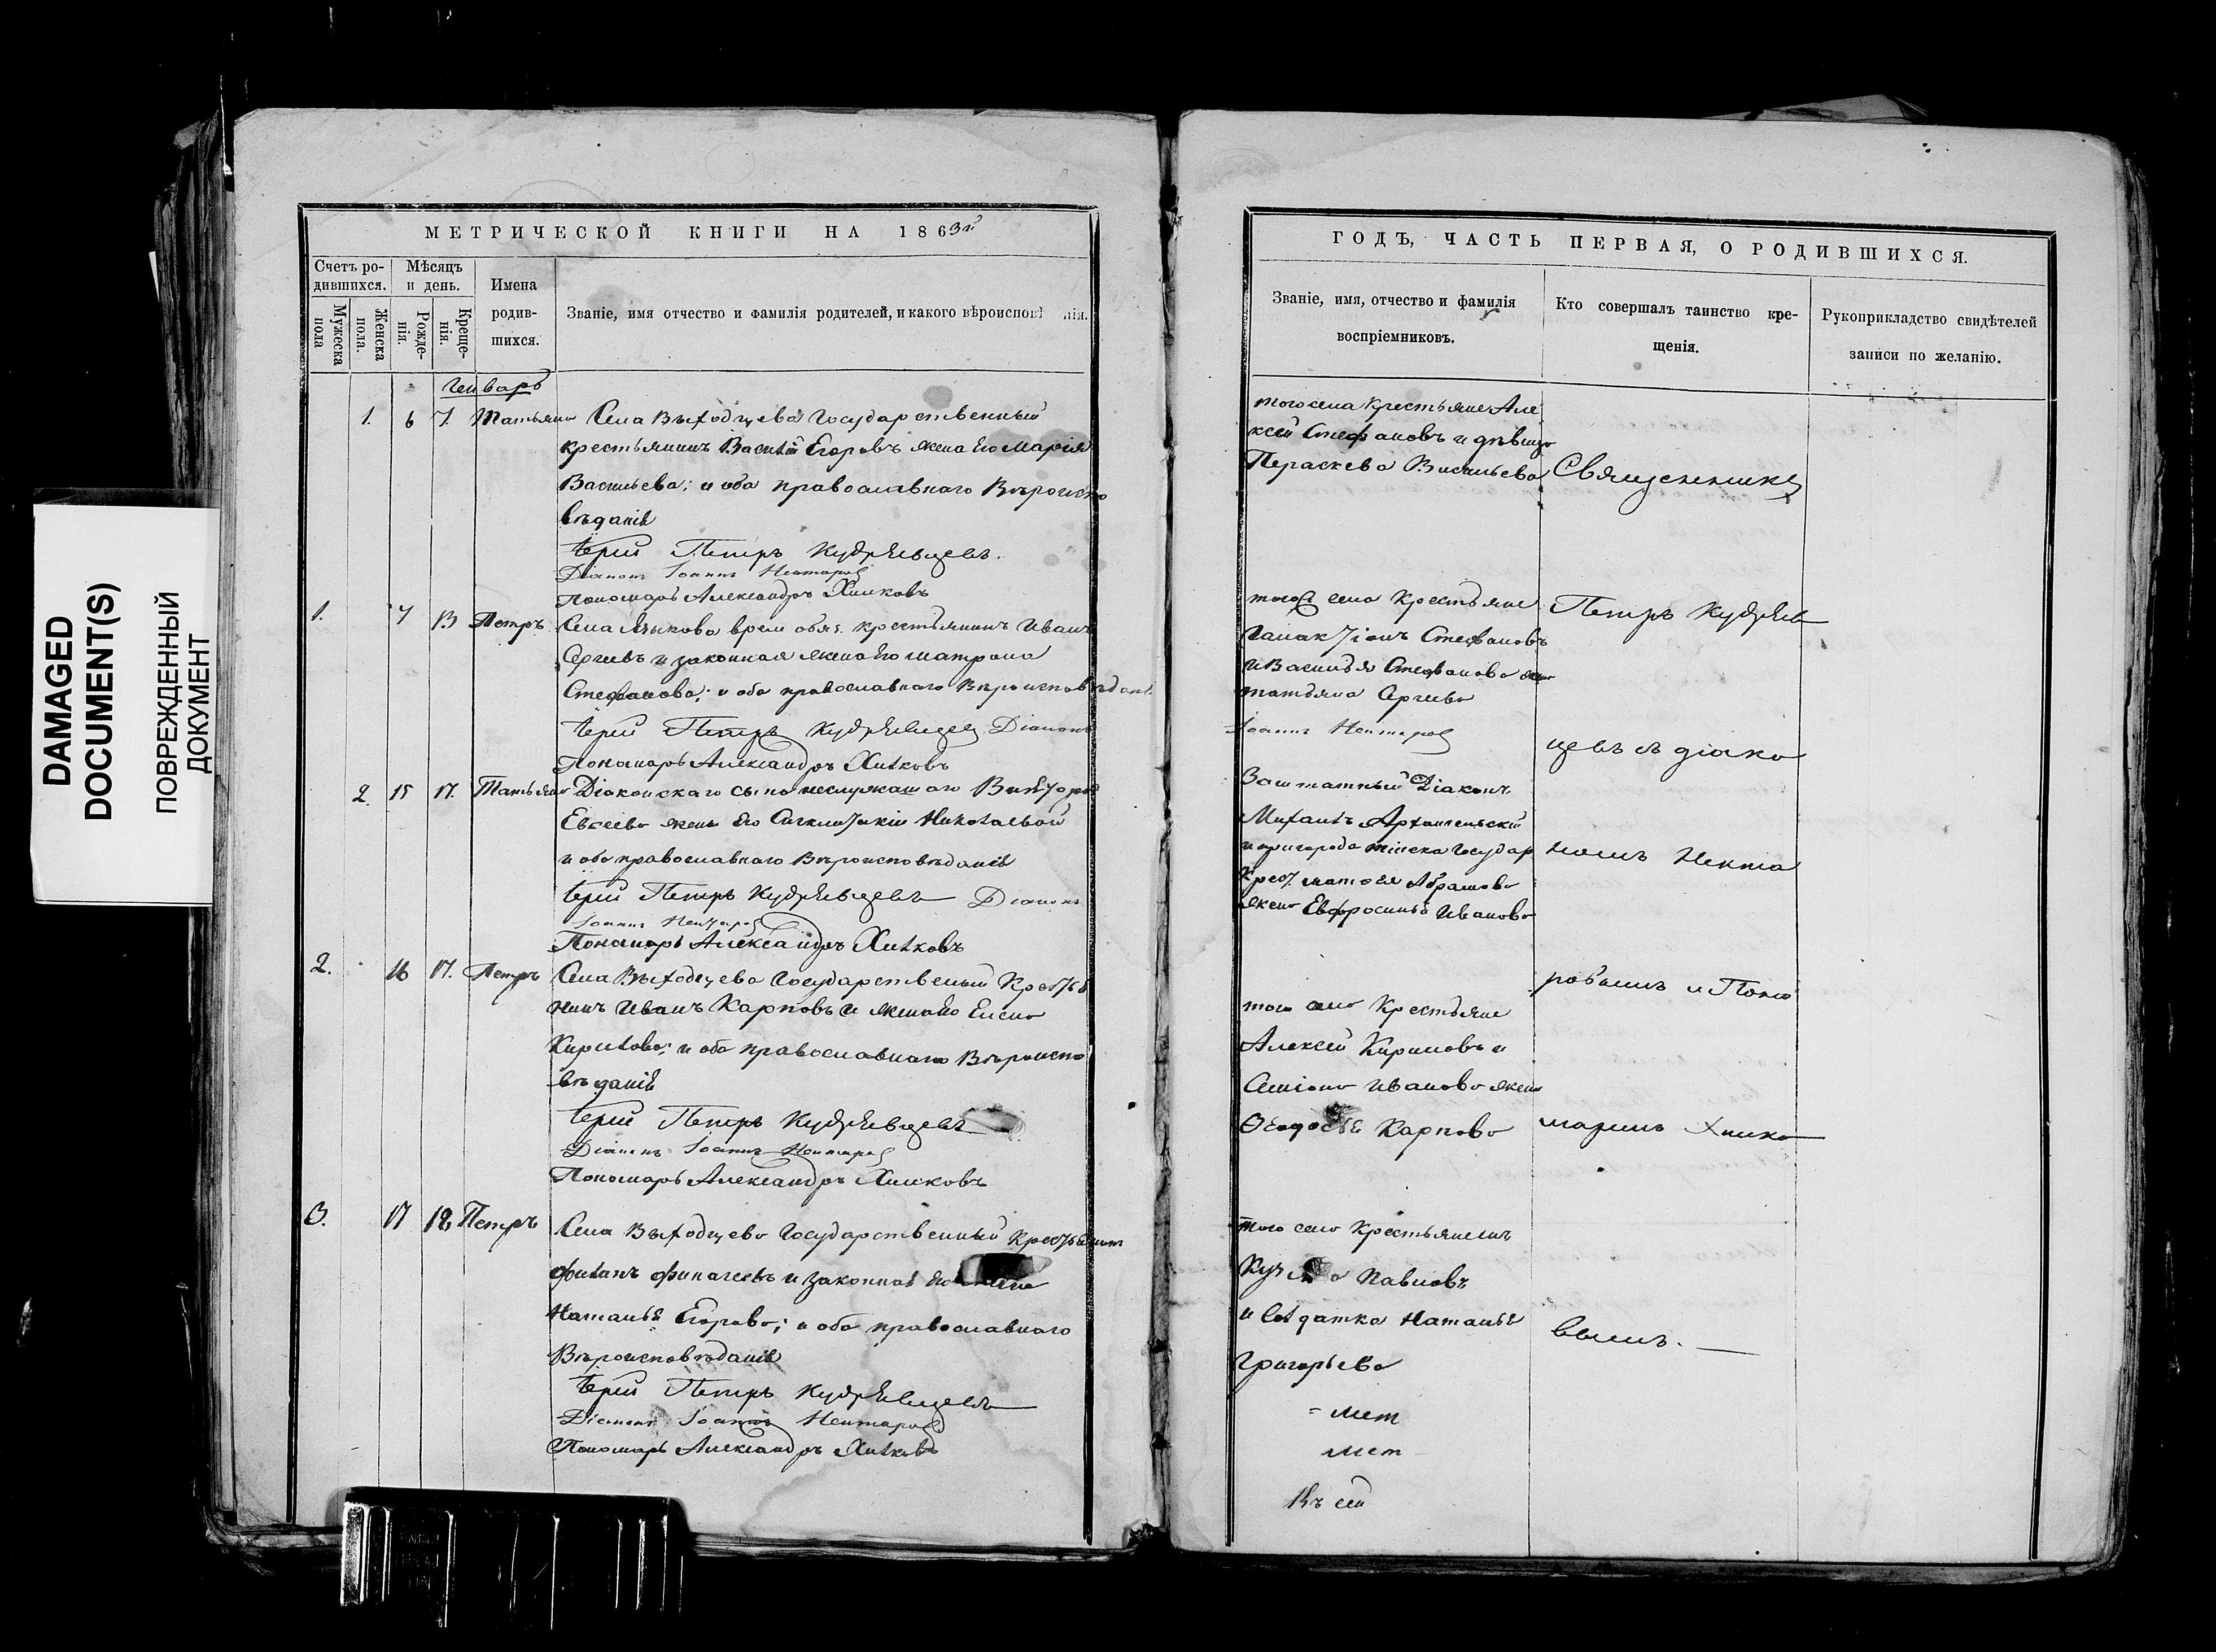 DAMAGED
DOCUMENT(S)
ПОВРЕЖДЕННЫЙ
ДОКУМЕНТ
МЕТРИЧЕСКОЙ КНИГИ НА 1863й
Счетъ ро-
дившихся.
Мѣсяцъ
и день.
Мужеска
пола
Женска
пола.
Рожде-
нія.
Креще-
нія.
Имена
родив-
шихся.
Званіе, имя отчество и фамилія родителей, и какого вѣроиспов нія.
Генварь
1. 6 7. Татьяна Села Выходцева Государственный
крестьянинъ Василій Егоровъ жена его Марія
Васильева; и оба православнаго Вѣроиспо
вѣданія
Іерей Петръ Кудрявцевъ.
Діаконъ Іоаннъ Нектаровъ
Пономарь Александръ Хилковъ
1. 7 13 Петръ Села Языкова врем обяз. крестьянинъ Иванъ
Сергеевъ и законная жена его Матрона
Стефанова; и оба православнаго Вѣроисповѣдані
Іерей Петръ Кудрявцевъ Діаконъ
Пономарь Александръ Хилковъ
2. 15 17. Татьяна Діаконскаго сына неслужащаго
Евсеева жены его Николаевой
и оба православнаго Вѣроисповѣданія
Іерей Петръ Кудрявцевъ Діаконъ
Іоаннъ Нектаровъ
Пономарь Александръ Хилковъ
2. 16 17. Петръ Села Выходцева Государственый Крестья
нинъ Иванъ Карповъ и жена его Елена
Кирилова; и оба православнаго Вѣроиспо
вѣданія
Іерей Петръ Кудрявцевъ
Діаконъ Іоаннъ Нектаровъ
Пономарь Александръ Хилковъ
3. 17 18 Петръ Села Выходцева Государственный Крестьянинъ
и законная его жена
Наталья Егорова; и оба православнаго
Вѣроисповѣданія
Іерей Петръ Кудрявцевъ
Діаконъ Іоаннъ Нектаровъ
Пономарь Александръ Хилковъ
ГОДЪ, ЧАСТЬ ПЕРВАЯ, О РОДИВШИХСЯ.
Званіе, имя, отчество и фамилія
воспріемниковъ.
Кто совершалъ таинство кре-
щенія.
Рукоприкладство свидѣтелей
записи по желанію.
того села крестьяне Але
ксей Стефановъ и дѣвица
Параскева Васильева
Священникъ
того села Крестьяне
Стефановъ
и Василья Стефанова жена
татьяна Сергеева
Іоаннъ Нектаровъ
Петръ Кудряв
цевъ съ діако
Заштатный Діаконъ
Михаилъ Архангельскій
и пригорода Государ
Крест. Абрамова
жена Евфросинья Иванова
номъ Некта
того села Крестьяне
Алексей Кириловъ и
Семіона Иванова жена
Ѳеодосья Карпова
ровымъ и Поно
маремъ Хилко
того села Крестьянинъ
Кузьма Павловъ
и солдатка Наталья
Григорьева
вымъ.